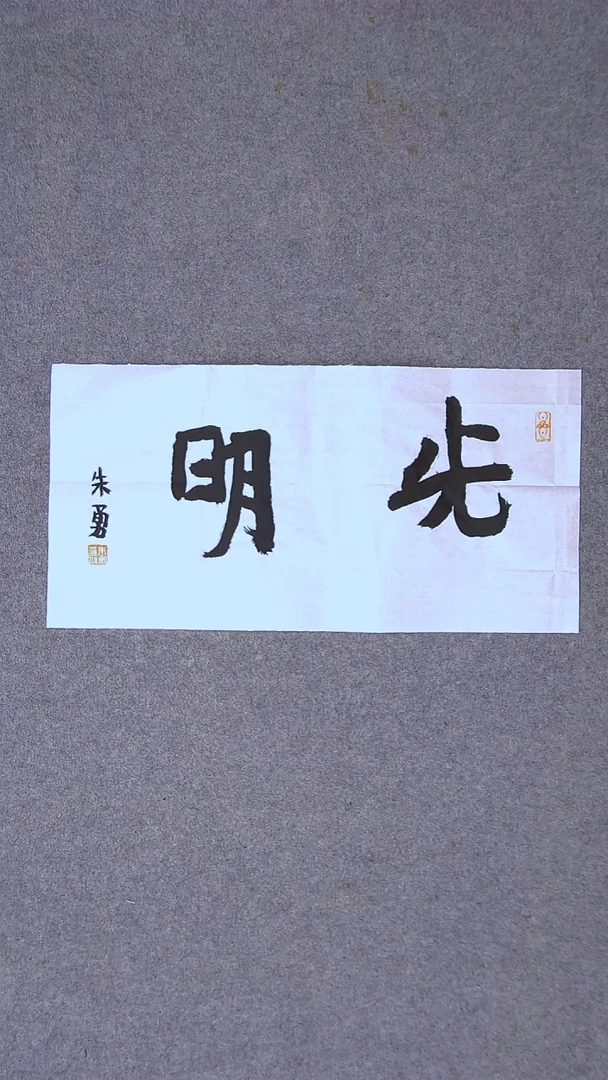 光明
朱勇